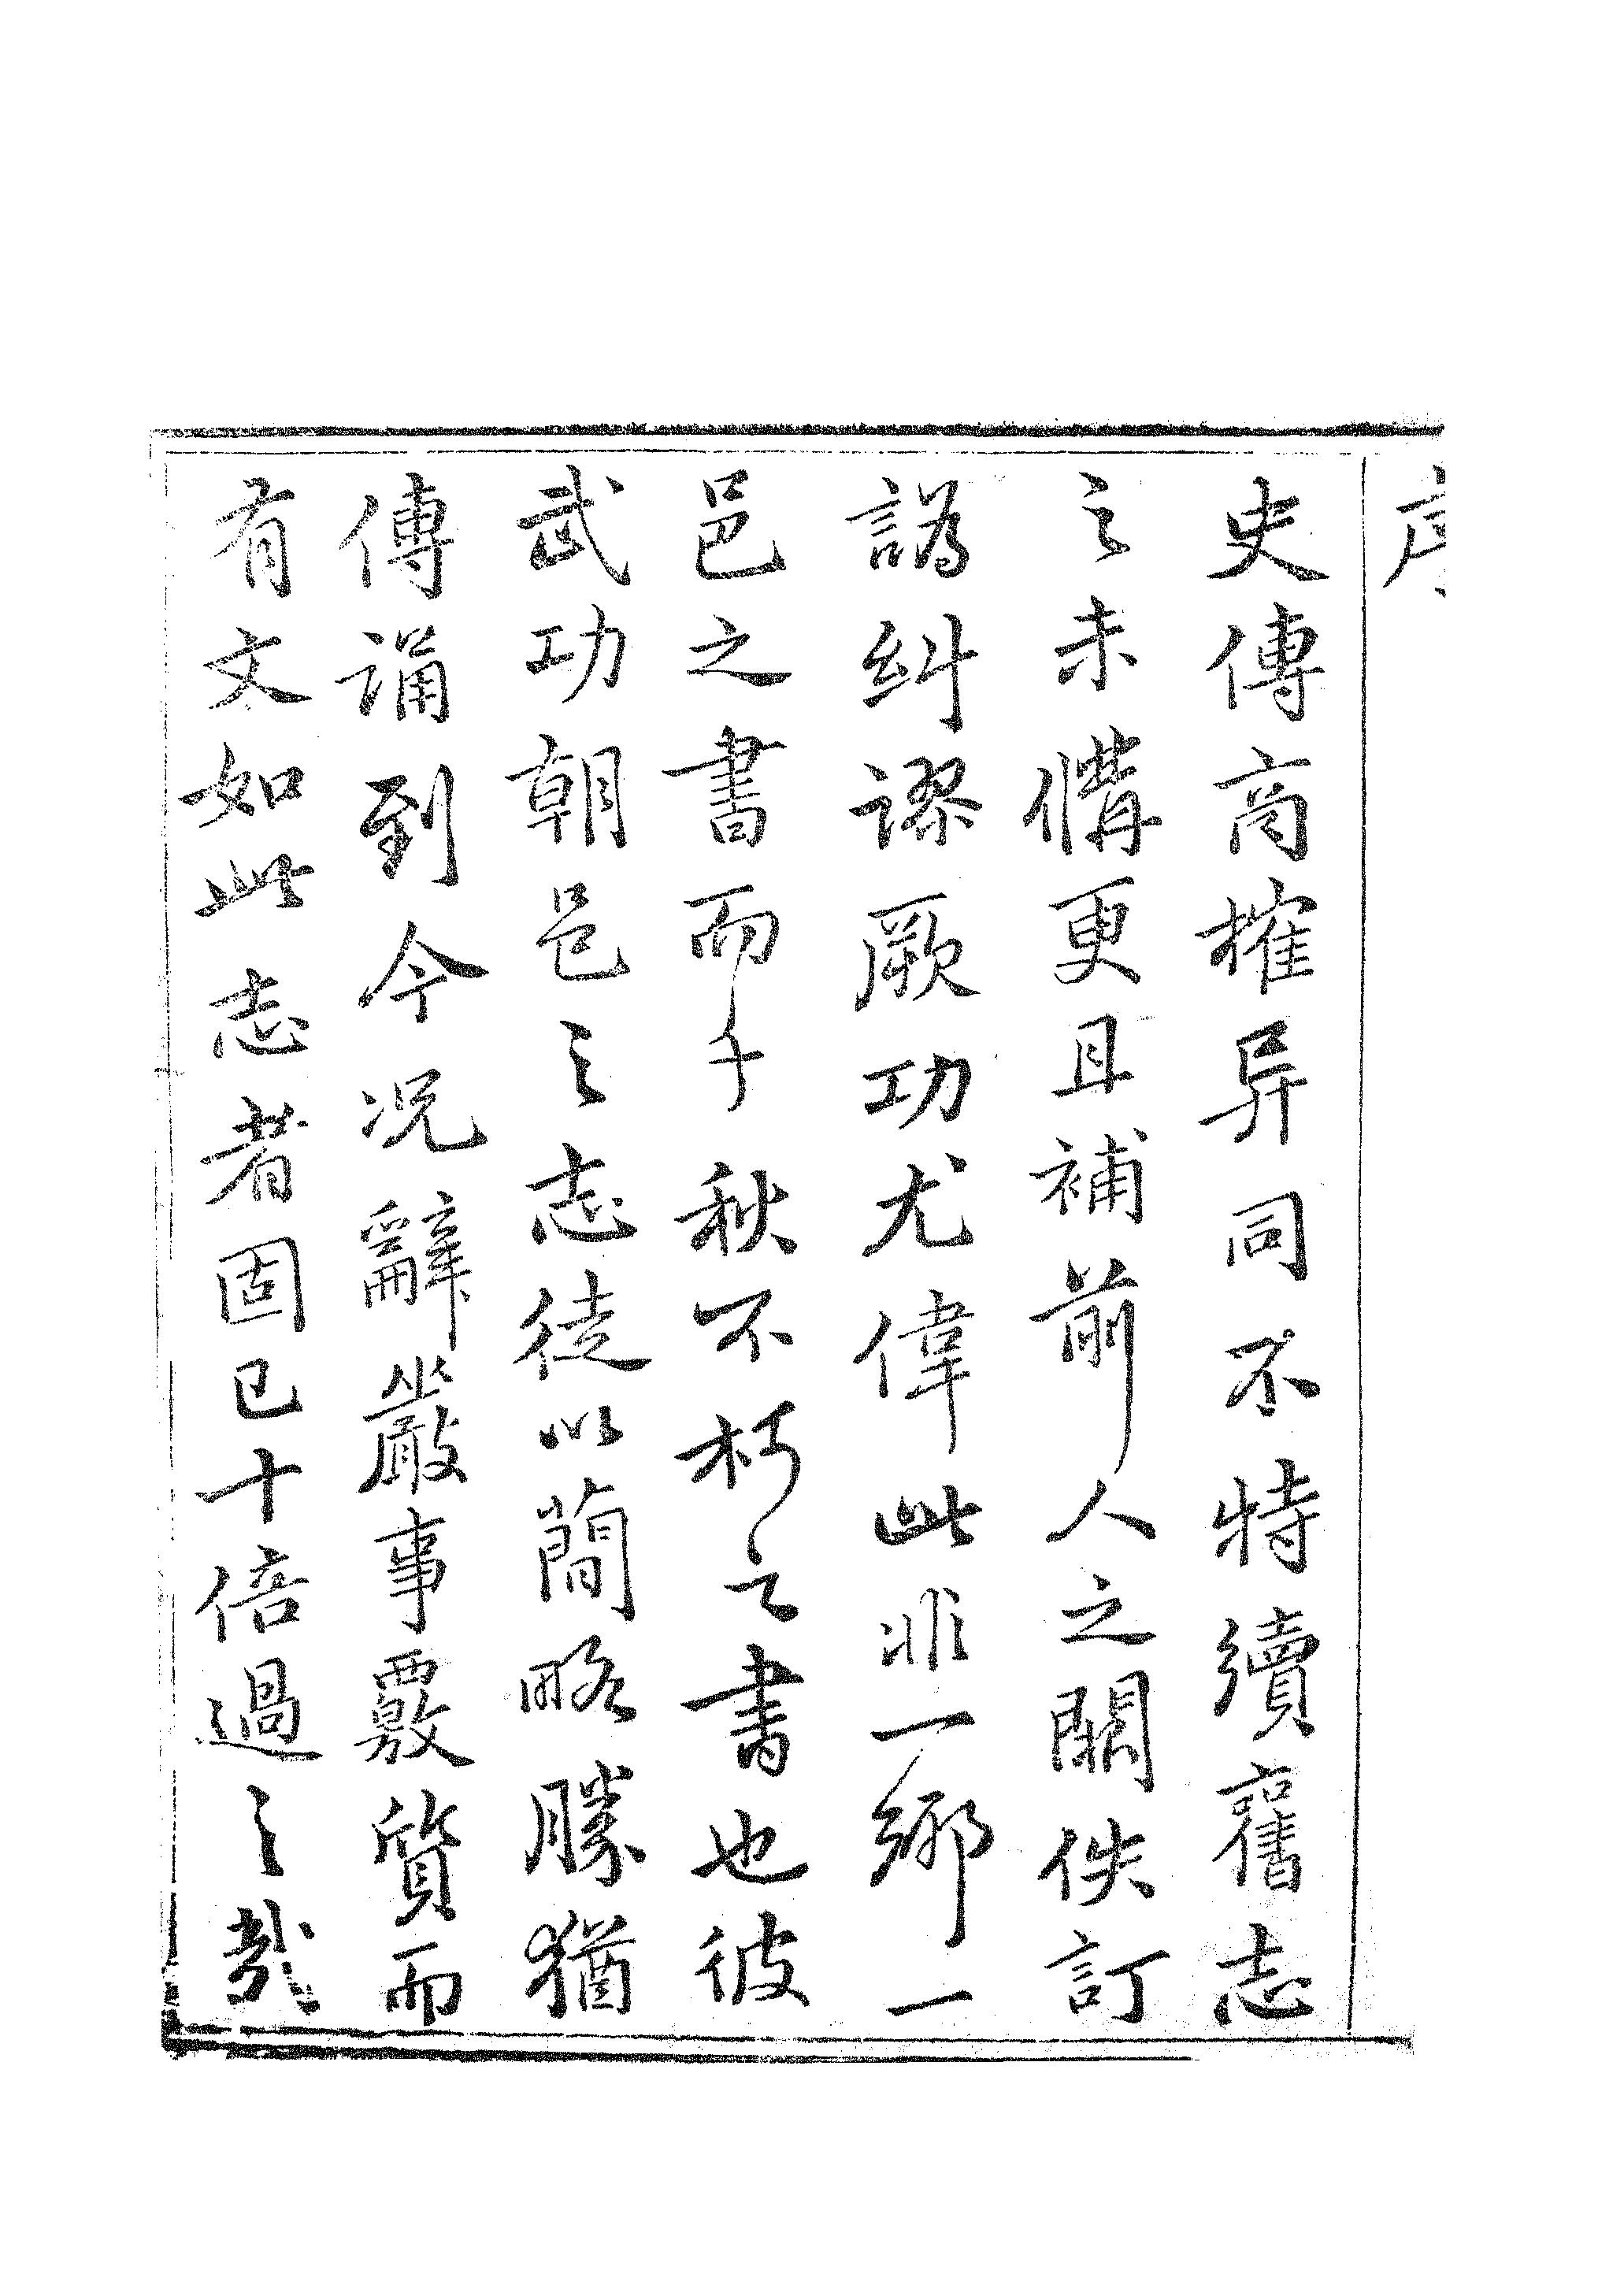 序
史傳商榷异同不特續舊志
之未備更且補前人之闕佚訂
譌糾謬厥功尤偉此非一鄉一
邑之書而千秋不朽之書也彼
武功朝邑之志徒以簡略勝猶
傳誦到今况辭嚴事覈質而
有文如此志者固已十倍過之哉